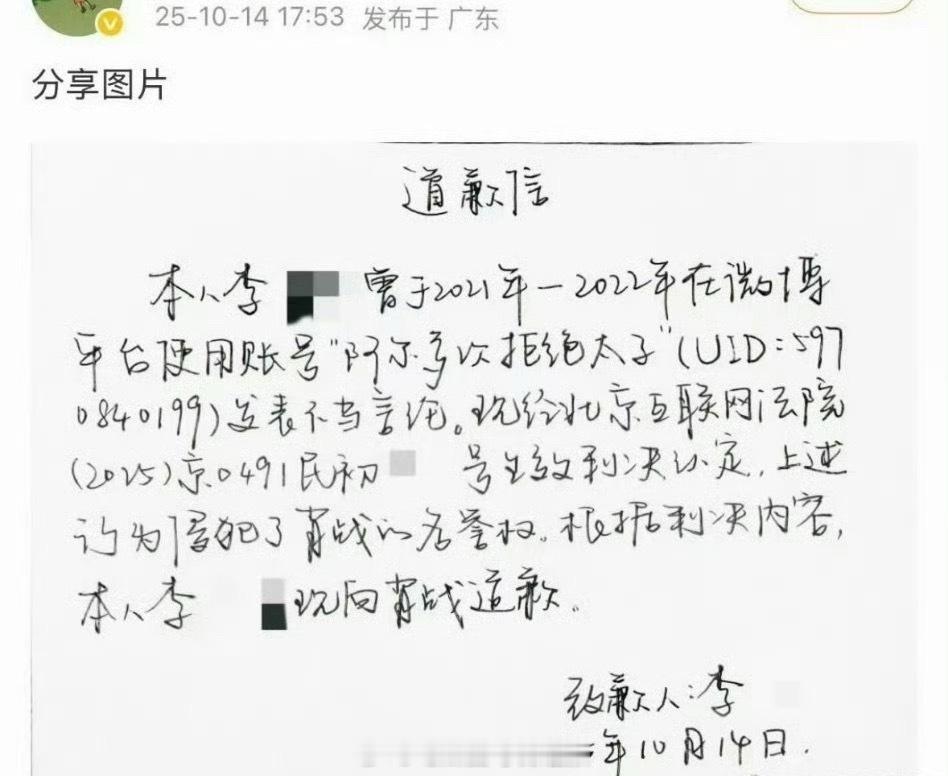 25-10-14 17:53 发布于 广东
分享图片
道歉信
本人李 曾于2021年-2022年在微博
平台使用账号“阿尔多次拒绝太子”(UID:597
0840199)发表不当言论。现经北京互联网法院
(2025)京0491民初 号生效判决认定,上述
行为侵犯了肖战的名誉权。根据判决内容,
本人李 现向肖战道歉。
致歉人:李
年10月14日.